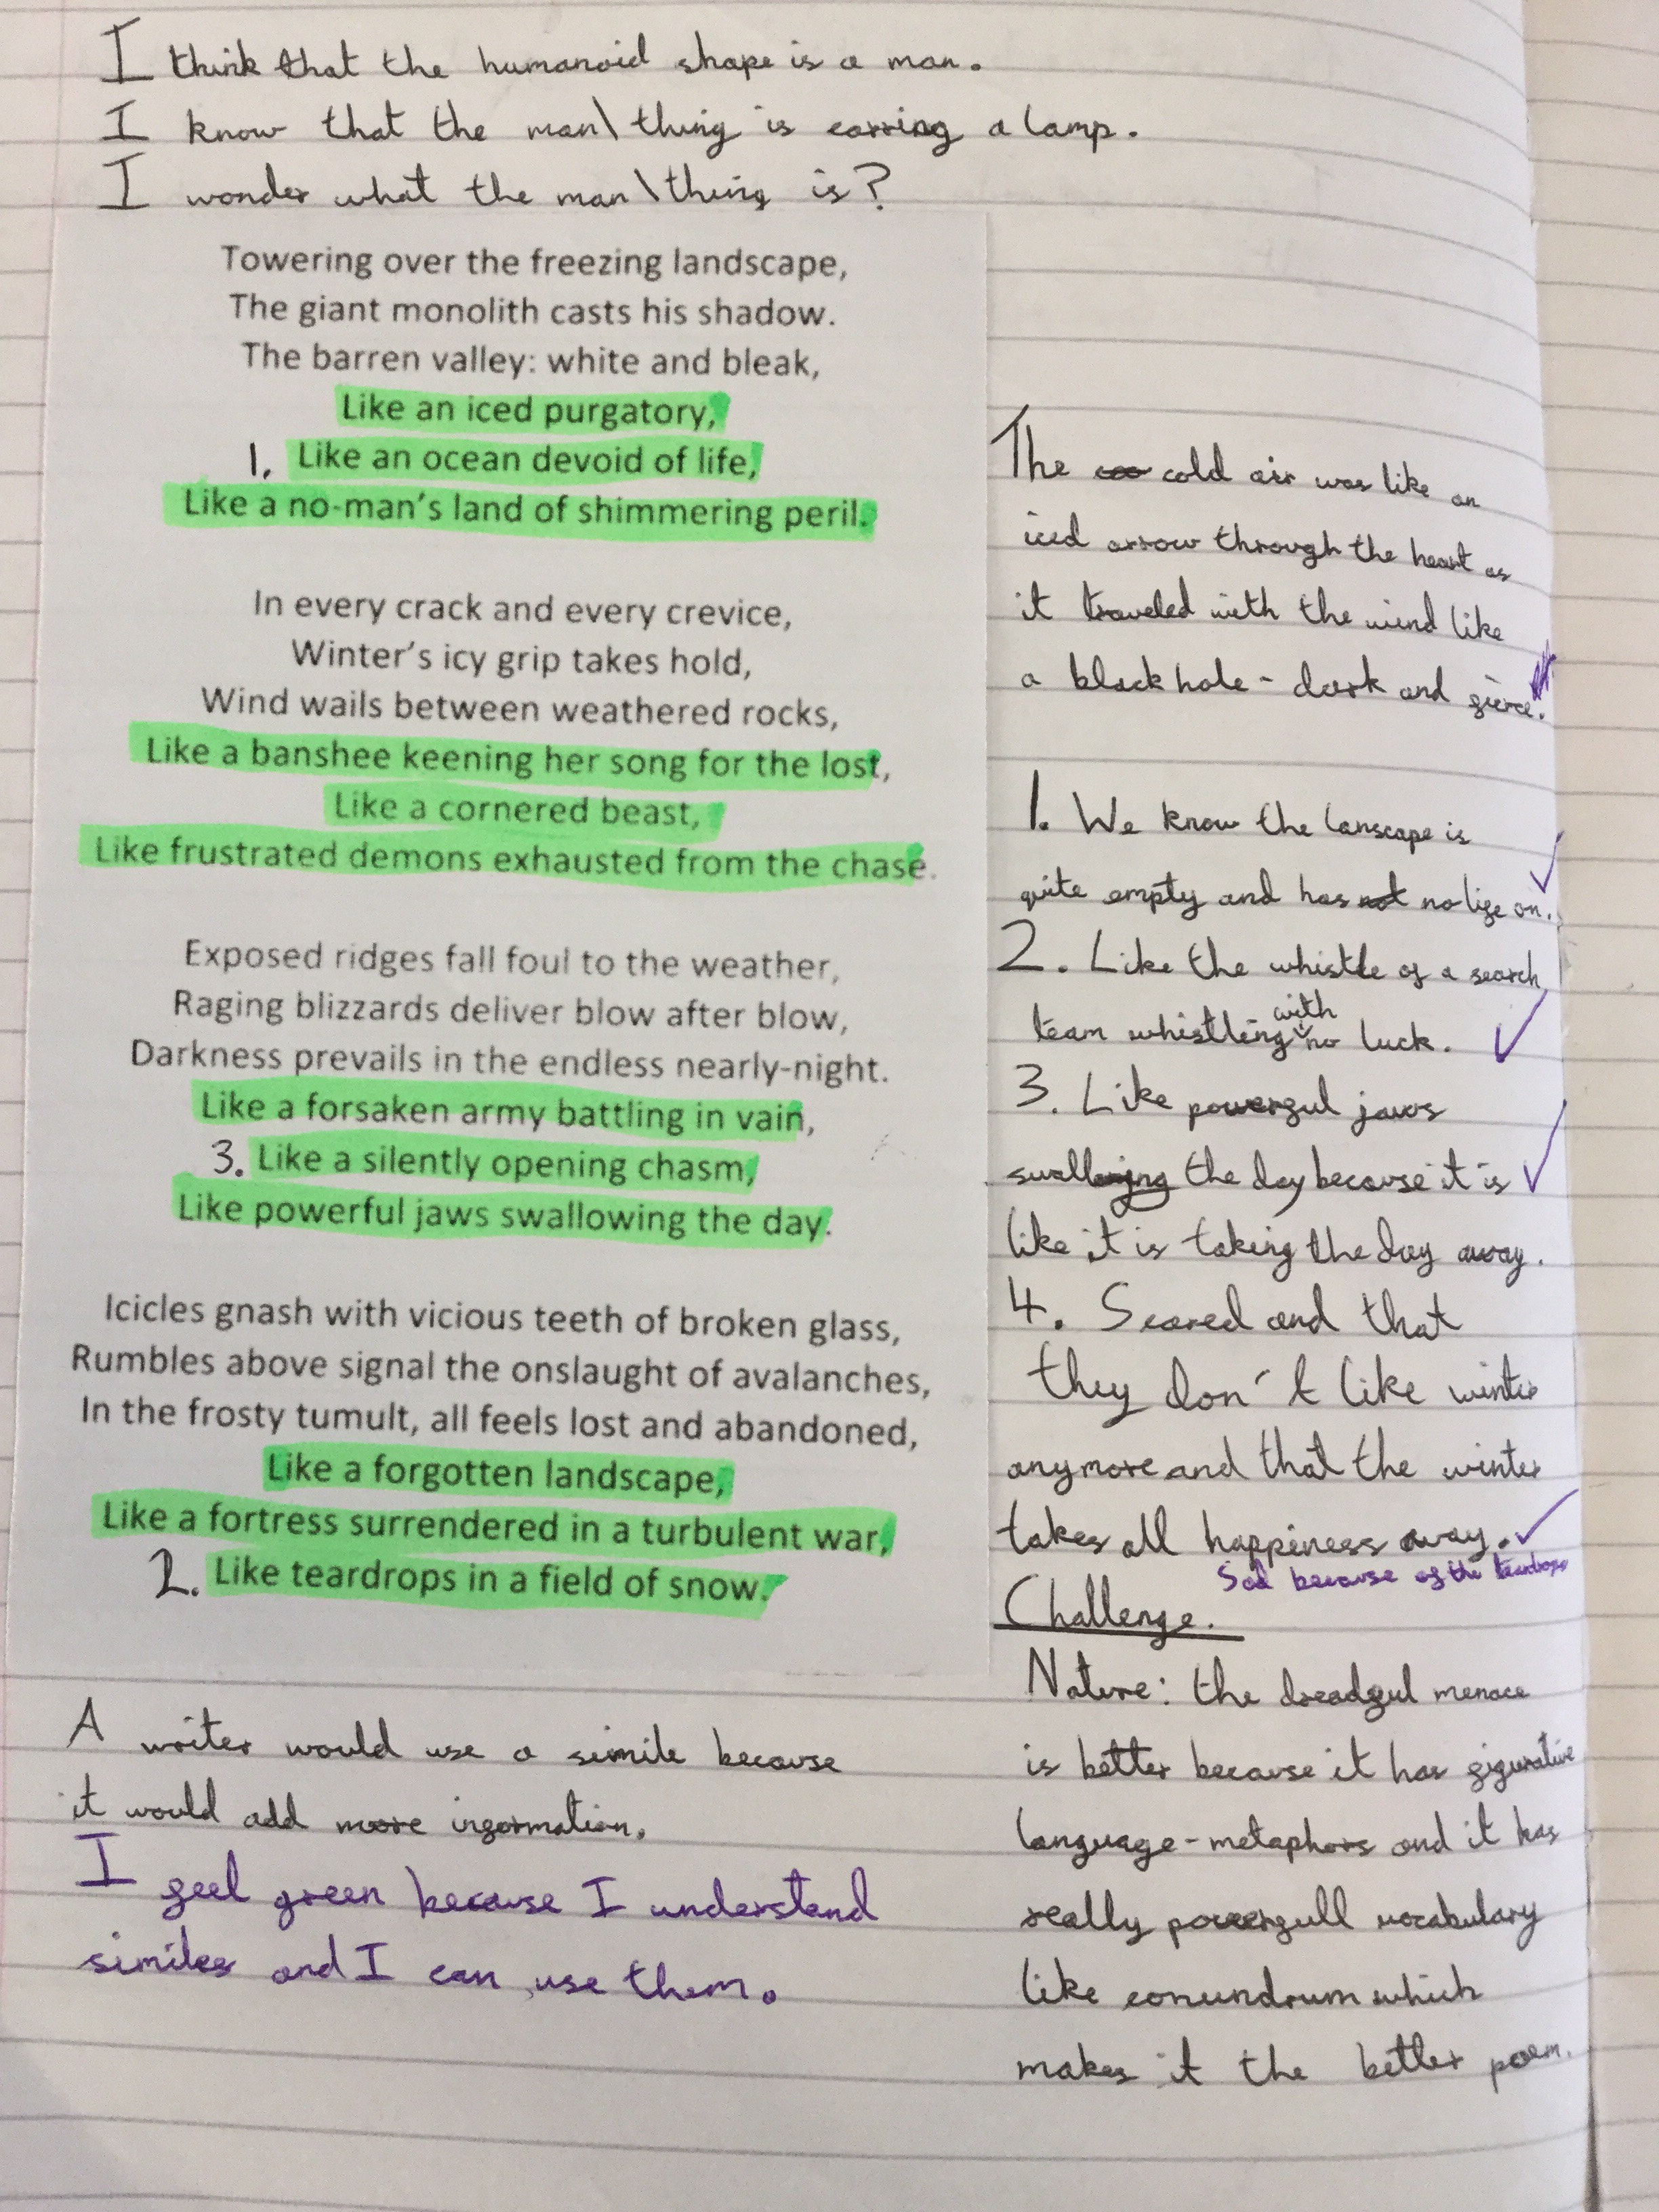 I think that the humanoid shape is a man.
I know that the man\thing is carring a lamp.
I wonder what the man\thing is?
Towering over the freezing landscape,
The giant monolith casts his shadow.
The barren valley: white and bleak,
Like an iced purgatory,
1. Like an ocean devoid of life,
Like a no-man's land of shimmering peril.
In every crack and every crevice,
Winter's icy grip takes hold,
Wind wails between weathered rocks,
Like a banshee keening her song for the lost,
Like a cornered beast,
Like frustrated demons exhausted from the chase.
Exposed ridges fall foul to the weather,
Raging blizzards deliver blow after blow,
Darkness prevails in the endless nearly-night.
Like a forsaken army battling in vain,
3. Like a silently opening chasm,
Like powerful jaws swallowing the day.
Icicles gnash with vicious teeth of broken glass,
Rumbles above signal the onslaught of avalanches,
In the frosty tumult, all feels lost and abandoned,
Like a forgotten landscape,
Like a fortress surrendered in a turbulent war,
2. Like teardrops in a field of snow.
A writer would use a simile because
it would add more information.
I feel green because I understand
similes and I can use them.
The cold air was like an
iced arrow through the heart as
it traveled with the wind like
a black hole - dark and fierce.
1. We know the lanscape is
quite empty and has no life on.
2. Like the whistle of a search
team whistling with no luck.
3. Like powerful jaws
swallowing the day because it is
like it is taking the day away.
4. Scared and that
they don't like winter
anymore and that the winter
takes all happiness away.
Sad because of the teardrops
Challenge.
Nature: the dreadful menace
is better because it has figurative
language - metaphors and it has
really powerfull vocabulary
like conundrum which
makes it the better poem.